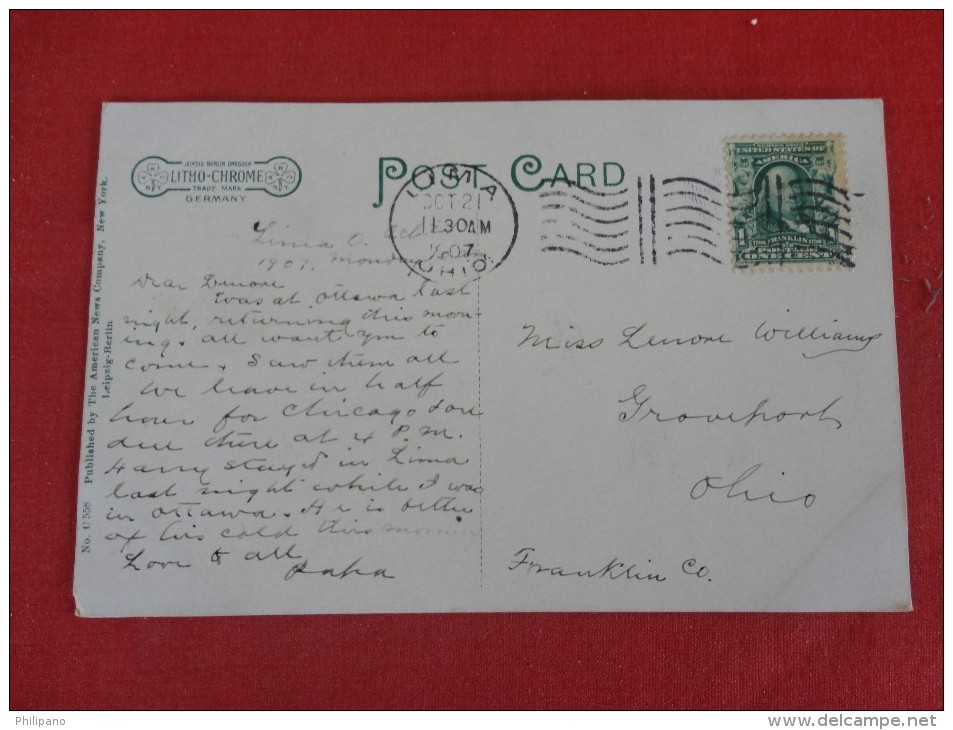 LEIPZIG BERLIN DRESDEN
LITHO-CHROME
TRADE MARK
GERMANY
POST CARD
LIMA
OCT 21
11.30 AM
1907
OHIO
SERIES 1902
UNITED STATES OF
AMERICA
FRANKLIN
ONE CENT
No. C 558 Published by The American News Company, New York.
Leipzig-Berlin
Lima O. Oct
1907. Monday
Dear Lenore
Was at Ottawa last
night, returning this morn-
ing. all want you to
come. Saw them all
We leave in half
hour for Chicago & are
due there at 4 P.M.
Harry stay'd in Lima
last night while I was
in Ottawa. He is better
of his cold this morning
Love to all
Papa
Miss Lenore Williams
Groveport
Ohio
Franklin Co.
Philipano
www.delcampe.net